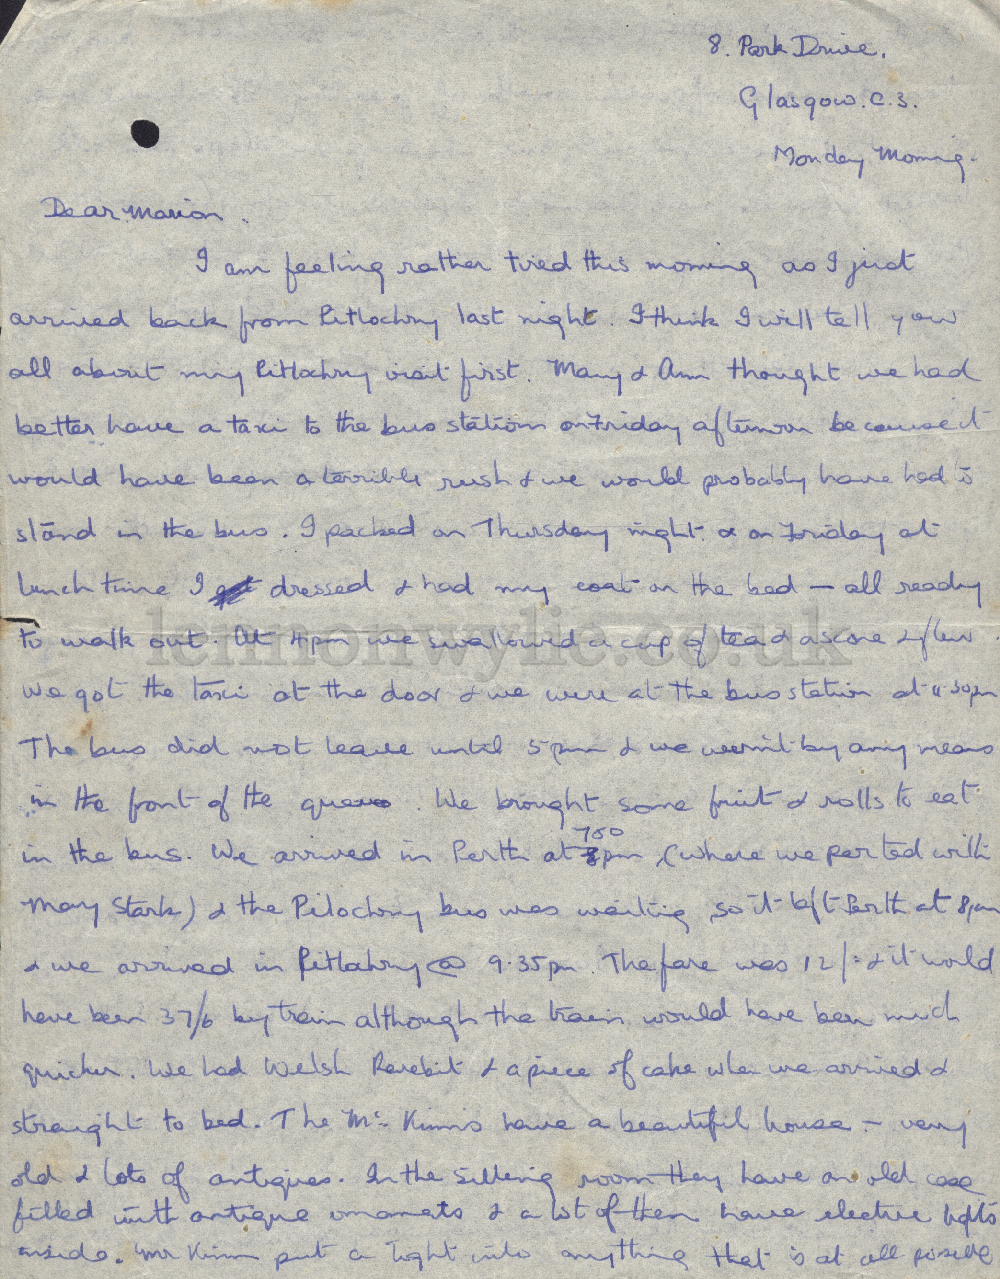 8. Park Drive.
Glasgow. C.3.
Monday Morning.
Dear Marion.
I am feeling rather tired this morning as I just
arrived back from Pitlochry last night. I think I will tell you
all about my Pitlochry visit first. Mary & Ann thought we had
better have a taxi to the bus station on Friday afternoon because it
would have been a terrible rush & we would probably have had to
stand in the bus. I packed on Thursday night & on Friday at
lunch time I dressed & had my coat on the bed — all ready
to walk out. At 4pm we swallowed a cup of tea & a scone & flew.
lennonwylie.co.uk
We got the taxi at the door & we were at the bus station at 4.30pm
The bus did not leave until 5pm & we weren't by any means
in the front of the queue. We brought some fruit & rolls to eat
in the bus. We arrived in Perth at 750 pm, (where we parted with
Mary Stark) & the Pitlochry bus was waiting so it left Perth at 8pm
& we arrived in Pitlochry @ 9.35pm. The fare was 12/= & it would
have been 37/6 by train although the train would have been much
quicker. We had Welsh Rarebit & a piece of cake when we arrived &
straight to bed. The McKinns have a beautiful house — very
old & lots of antiques. In the sitting room they have an old case
filled with antique ornaments & a lot of them have electric lights
inside. Mr Kinn put a light into anything that is at all possible